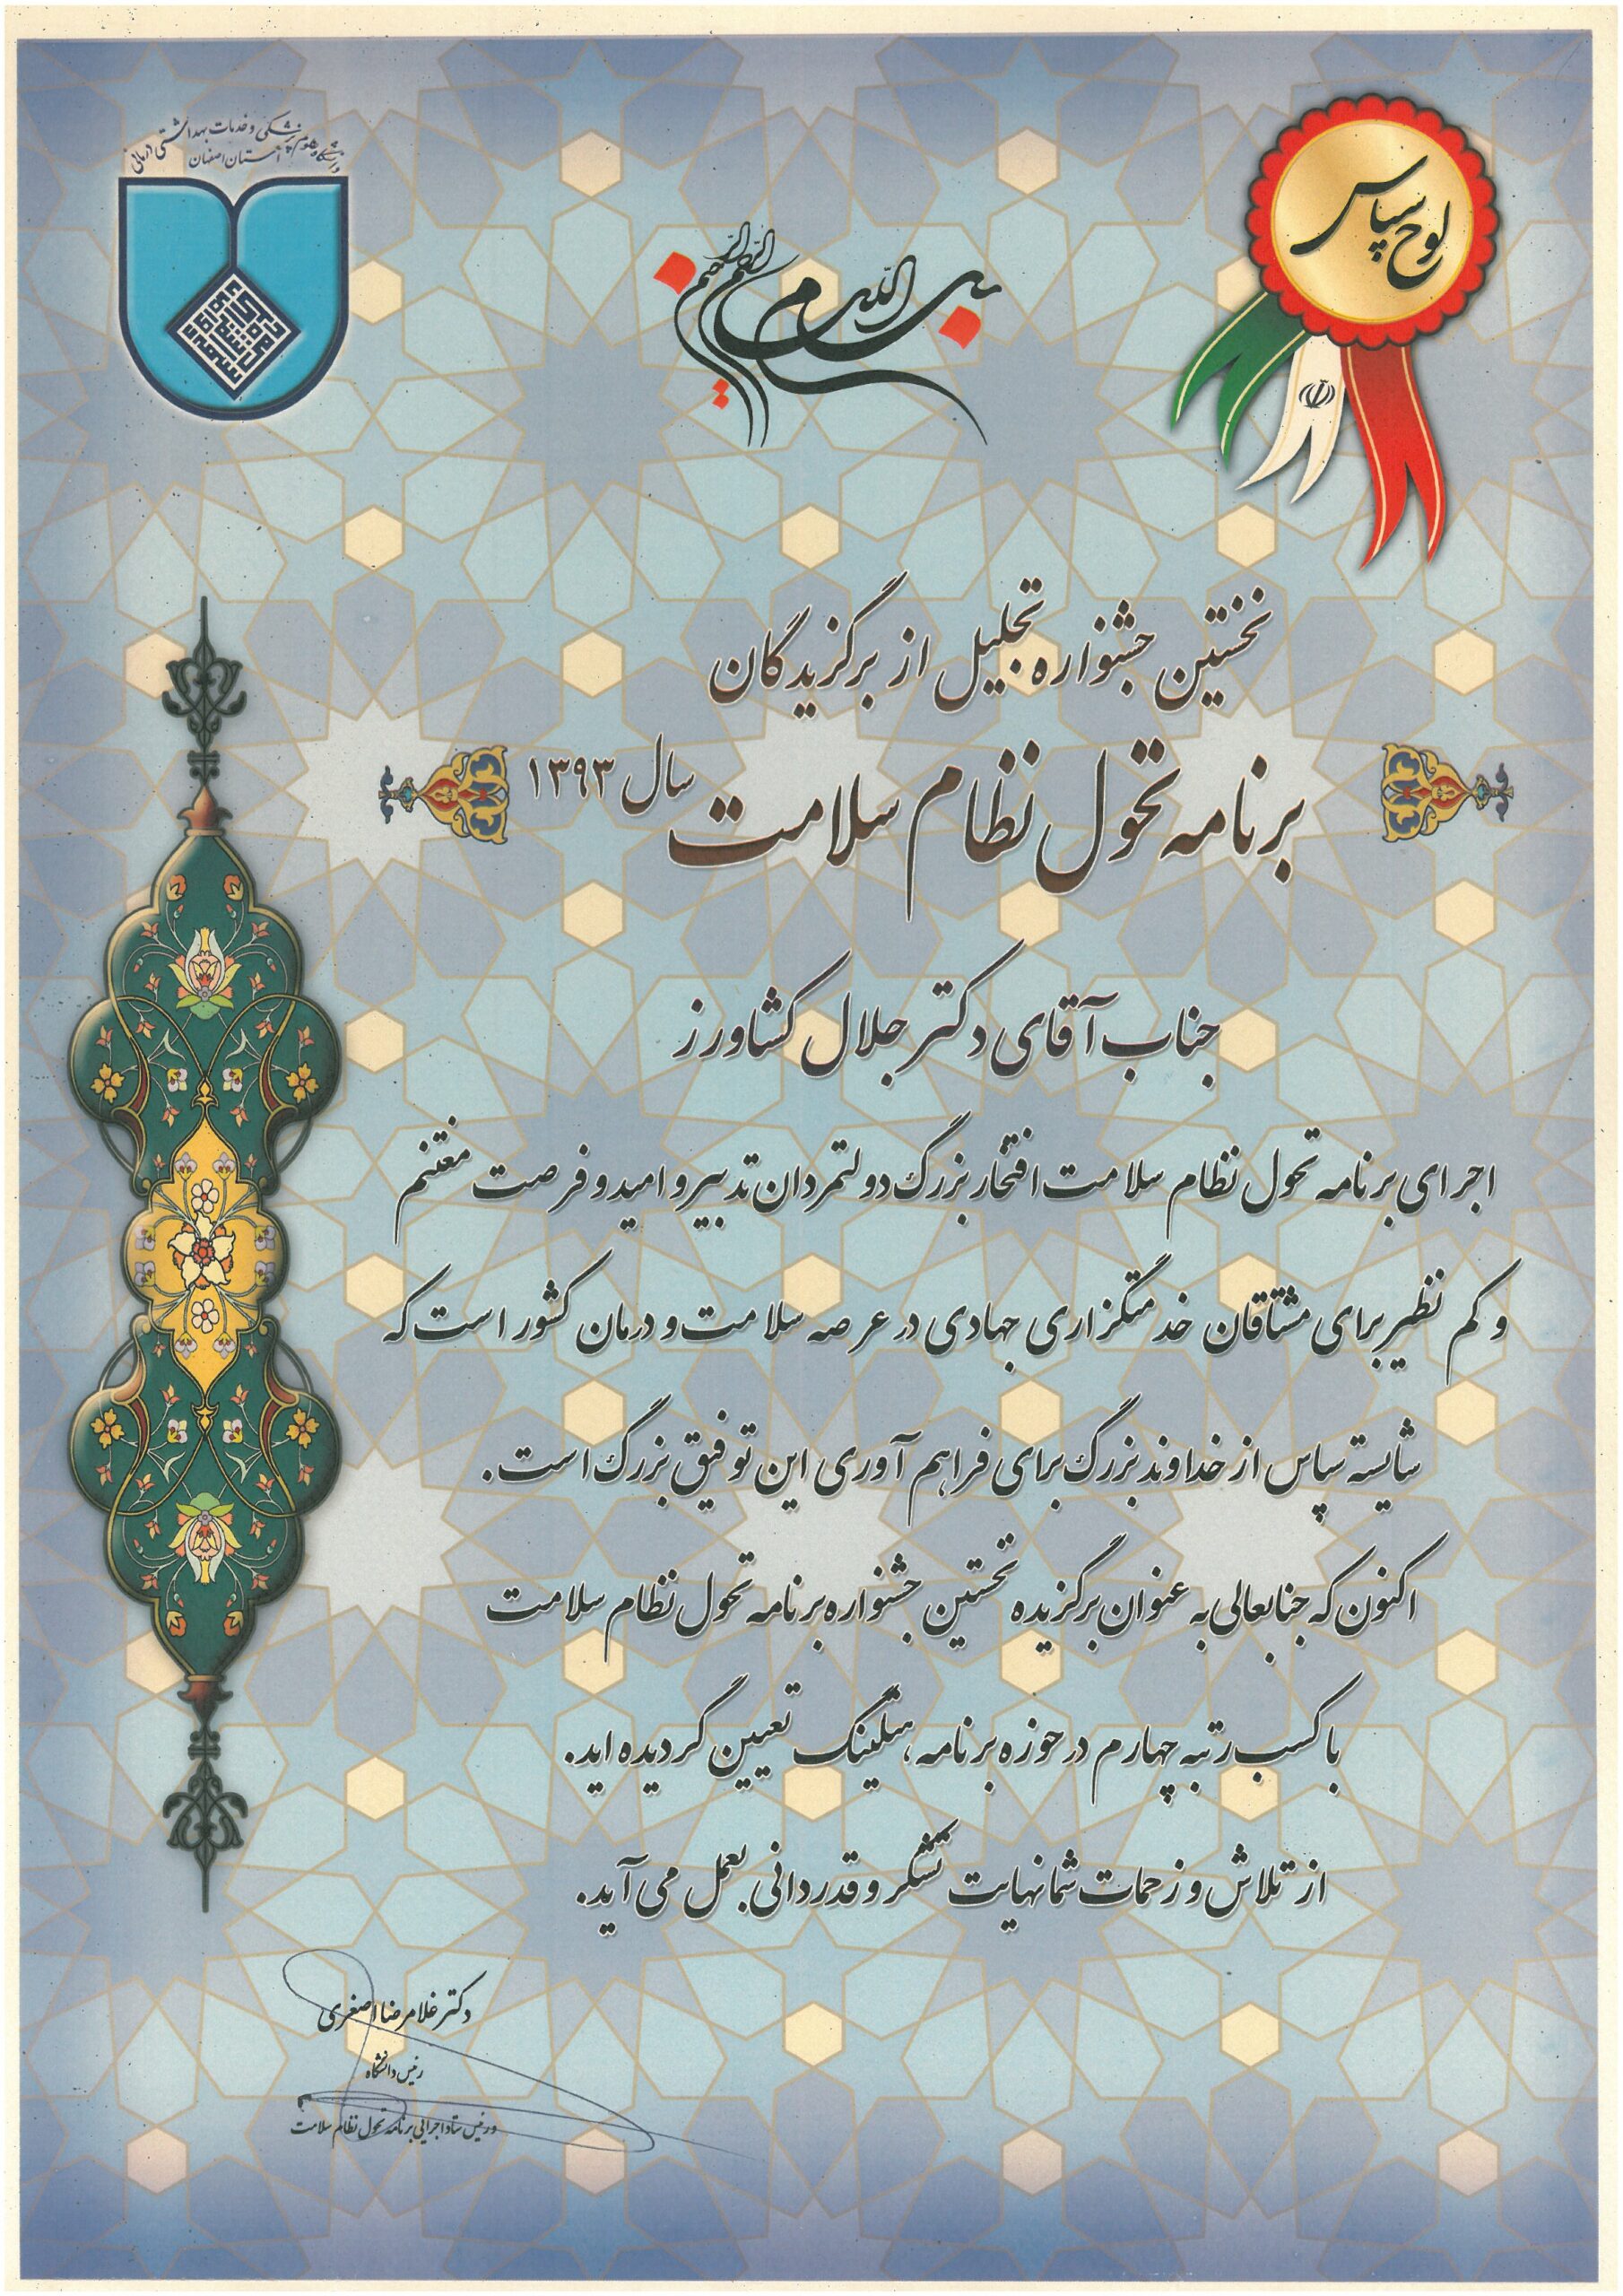 دانشگاه علوم پزشکی و خدمات بهداشتی درمانی
استان اصفهان
لوح سپاس
بسم الله الرحمن الرحیم
نخستین جشنواره تجلیل از برگزیدگان
برنامه تحول نظام سلامت سال ۱۳۹۳
جناب آقای دکتر جلال کشاورز
اجرای برنامه تحول نظام سلامت افتخار بزرگ دولتمردان تدبیر و امید و فرصت مغتنم
و کم نظیر برای مشتاقان خدمتگزاری جهادی در عرصه سلامت و درمان کشور است که
شایسته سپاس از خداوند بزرگ برای فراهم آوری این توفیق بزرگ است.
اکنون که جنابعالی به عنوان برگزیده نخستین جشنواره برنامه تحول نظام سلامت
با کسب رتبه چهارم در حوزه برنامه، هتلینگ تعیین گردیده اید.
از تلاش و زحمات شما نهایت تشکر و قدردانی بعمل می آید.
دکتر غلامرضا اصغری
رئیس دانشگاه
و رئیس ستاد اجرایی برنامه تحول نظام سلامت